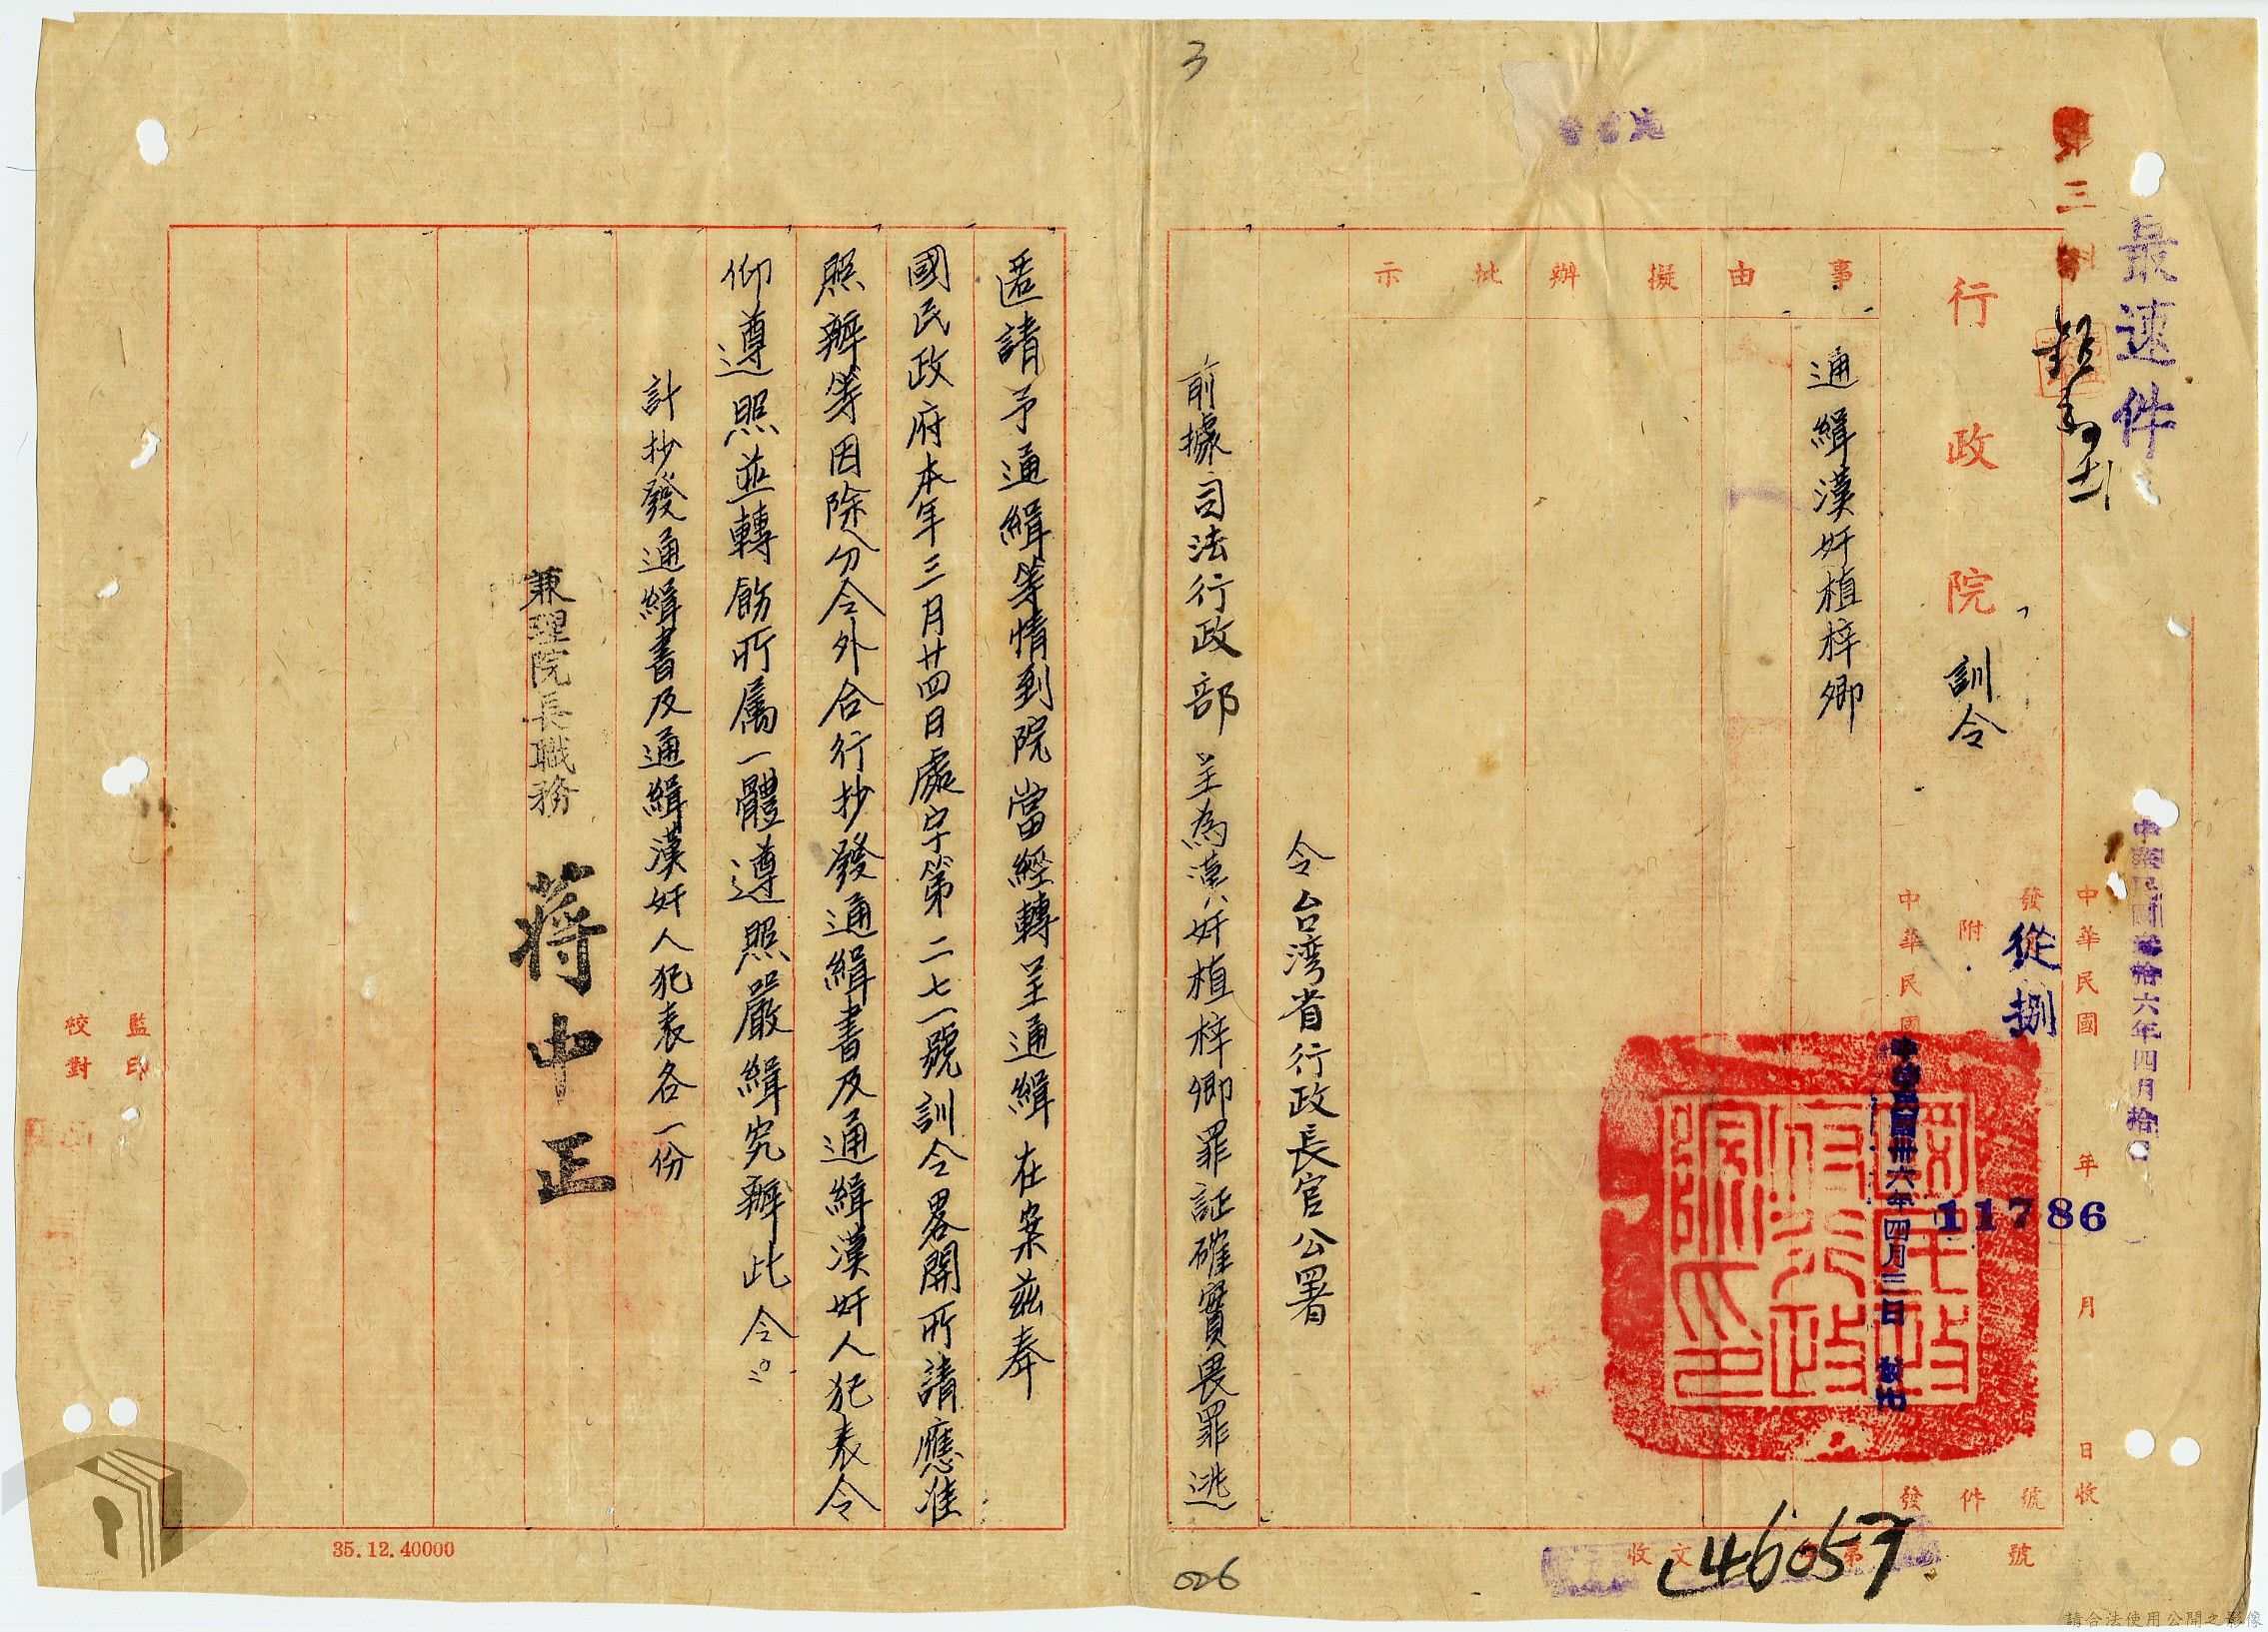 最速件
中華民國叁拾六年四月拾日
第三科
中華民國 年 月 日收
發 從捌 11786 號
附 件
中華民國卅六年四月三日 發
行政院 訓令
事由
擬辦
批示
通緝漢奸植梓卿
令台湾省行政長官公署
前據司法行政部 呈為漢奸植梓卿罪証確實畏罪逃
匿請予通緝等情到院當經轉呈通緝在案茲奉
國民政府本年三月廿四日處字第二七一號訓令畧開所請應准
照辦等因除分令外合行抄發通緝書及通緝漢奸人犯表令
仰遵照並轉飭所屬一體遵照嚴緝究辦此令。
計抄發通緝書及通緝漢奸人犯表各一份
兼理院長職務 蔣中正
監印
校對
收文 第 46057 號
35.12.40000
3
026
請合法使用公開之影像